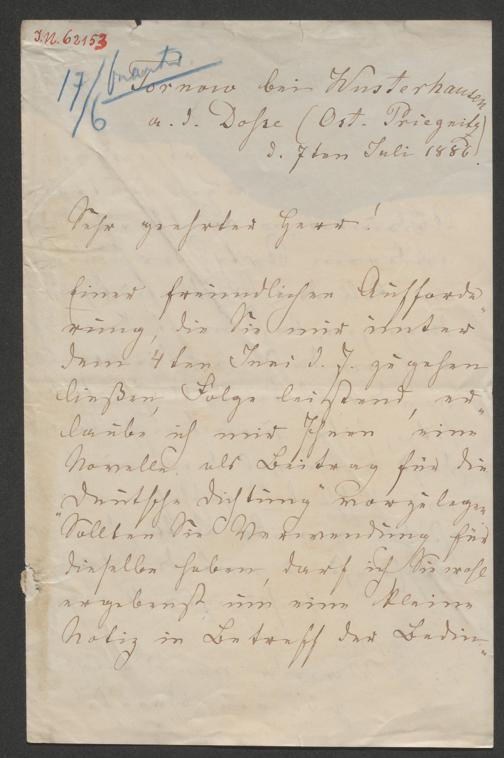 I.N. 62153
17/6 beantw.
Tornow bei Wusterhausen
a. d. Dosse (Ost-Priegnitz)
d. 7ten Juli 1886.
Sehr geehrter Herr!
Einer freundlichen Aufforde-
rung, die Sie mir unter
dem 4ten Juni d. J. zugehen
ließen, Folge leistend, er-
laube ich mir Ihnen eine
Novelle als Beitrag für die
"Deutsche Dichtung" vorzulegen
Sollten Sie Verwendung für
dieselbe haben, darf ich Sie wohl
ergebenst um eine kleine
Notiz in Betreff der Bedin-